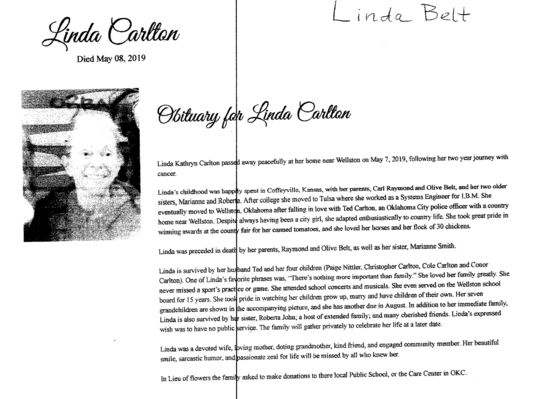 Linda Belt
Linda Carlton
Died May 08, 2019
Obituary for Linda Carlton
Linda Kathryn Carlton passed away peacefully at her home near Wellston on May 7, 2019, following her two year journey with
cancer.
Linda's childhood was happily spent in Coffeyville, Kansas, with her parents, Carl Raymond and Olive Belt, and her two older
sisters, Marianne and Roberta. After college she moved to Tulsa where she worked as a Systems Engineer for I.B.M. She
eventually moved to Wellston, Oklahoma after falling in love with Ted Carlton, an Oklahoma City police officer with a country
home near Wellston. Despite always having been a city girl, she adapted enthusiastically to country life. She took great pride in
winning awards at the county fair for her canned tomatoes, and she loved her horses and her flock of 30 chickens.
Linda was preceded in death by her parents, Raymond and Olive Belt, as well as her sister, Marianne Smith.
Linda is survived by her husband Ted and her four children (Paige Nittler, Christopher Carlton, Cole Carlton and Conor
Carlton). One of Linda's favorite phrases was, "There's nothing more important than family." She loved her family greatly. She
never missed a sport's practice or game. She attended school concerts and musicals. She even served on the Wellston school
board for 15 years. She took pride in watching her children grow up, marry and have children of their own. Her seven
grandchildren are shown in the accompanying picture, and she has another due in August. In addition to her immediate family,
Linda is also survived by her sister, Roberta John; a host of extended family; and many cherished friends. Linda's expressed
wish was to have no public service. The family will gather privately to celebrate her life at a later date.
Linda was a devoted wife, loving mother, doting grandmother, kind friend, and engaged community member. Her beautiful
smile, sarcastic humor, and passionate zeal for life will be missed by all who knew her.
In Lieu of flowers the family asked to make donations to there local Public School, or the Care Center in OKC.